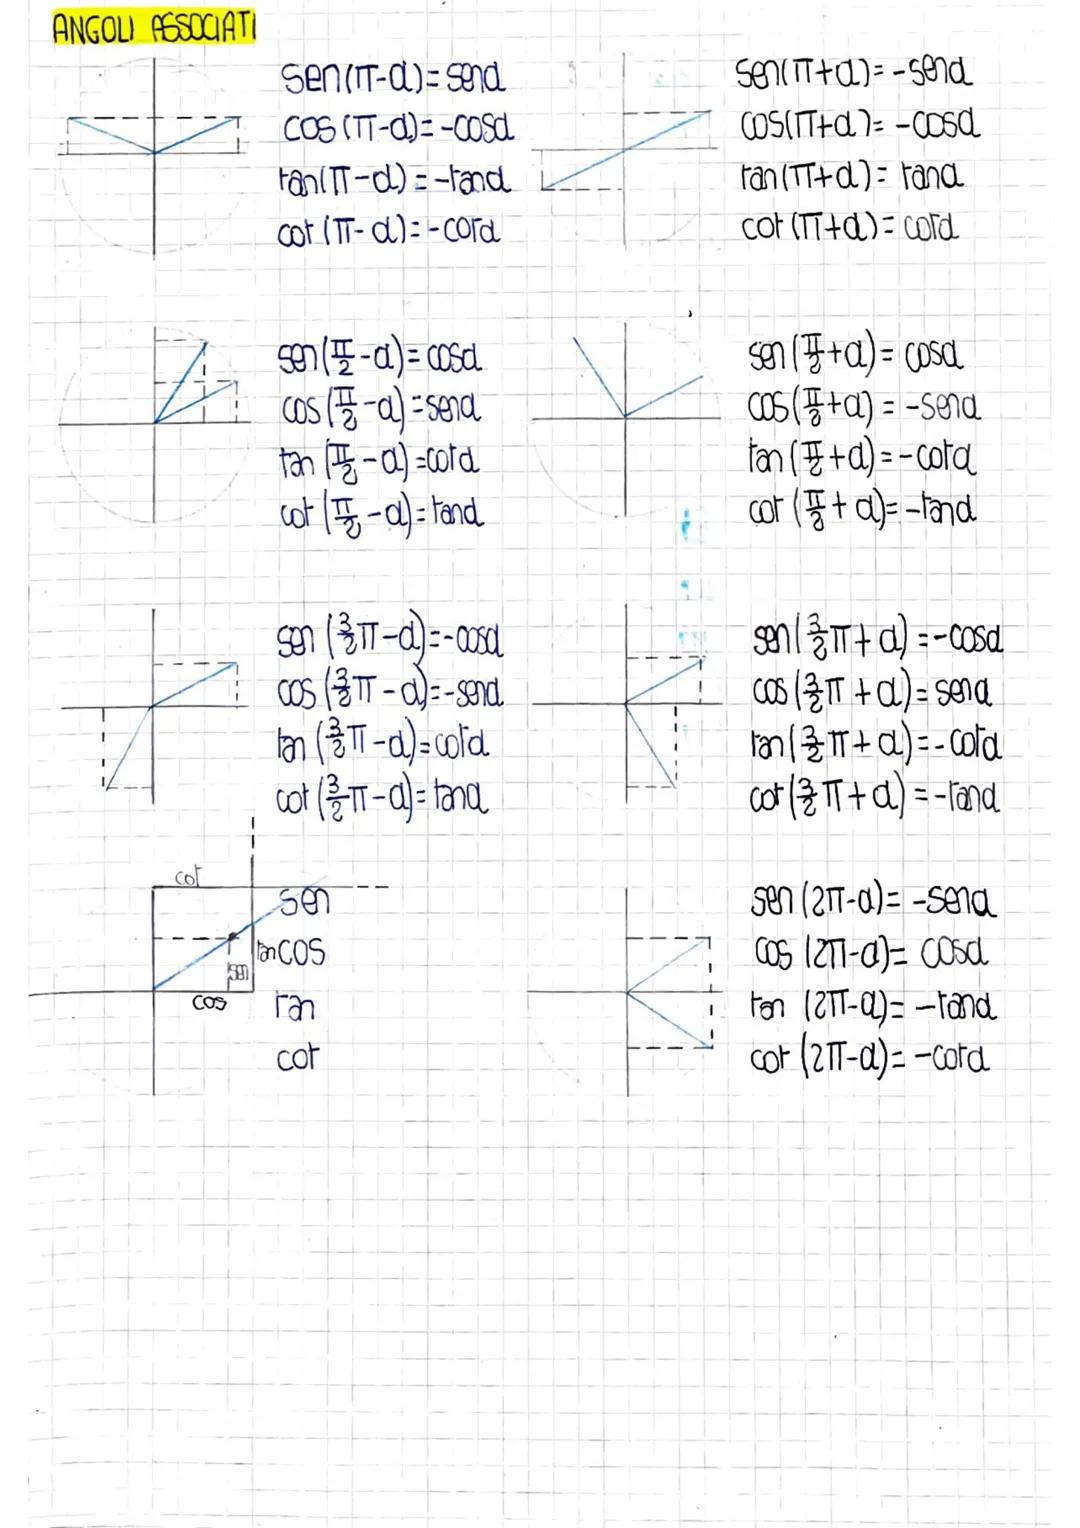 ANGOLI ASSOCIATI
sen(π-α)=senα
cos(π-α)=-cosα
tan(π-α)=-tanα
cot(π-α)=-cotα
sen(π+α)=-senα
cos(π+α)=-cosα
tan(π+α)=tanα
cot(π+α)=cotα
sen(π/2-α)=cosα
cos(π/2-α)=senα
tan(π/2-α)=cotα
cot(π/2-α)=tanα
sen(π/2+α)=cosα
cos(π/2+α)=-senα
tan(π/2+α)=-cotα
cot(π/2+α)=-tanα
sen(3/2π-α)=-cosα
cos(3/2π-α)=-senα
tan(3/2π-α)=cotα
cot(3/2π-α)=tanα
sen(3/2π+α)=-cosα
cos(3/2π+α)=senα
tan(3/2π+α)=-cotα
cot(3/2π+α)=-tanα
cot
tan
sen
cos
sen
cos
tan
cot
sen(2π-α)=-senα
cos(2π-α)=cosα
tan(2π-α)=-tanα
cot(2π-α)=-cotα